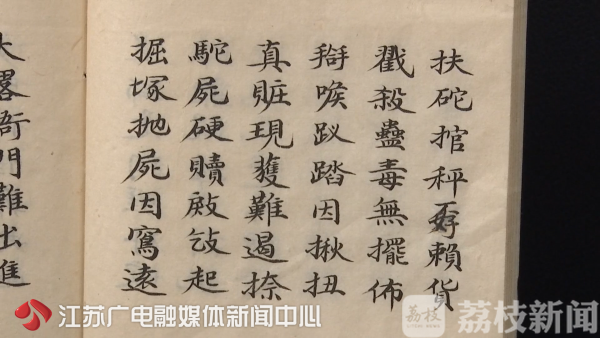 扶砣捾秤孬賴貨
戳殺蠱毒無擺佈
搿喉趿踏因揪扭
真賍現獲難遏捺
駝屍硬贖敁敆起
掘塚抛屍因窵遠
大畧衙門難出進
江苏广电融媒体新闻中心
荔枝
荔枝新闻